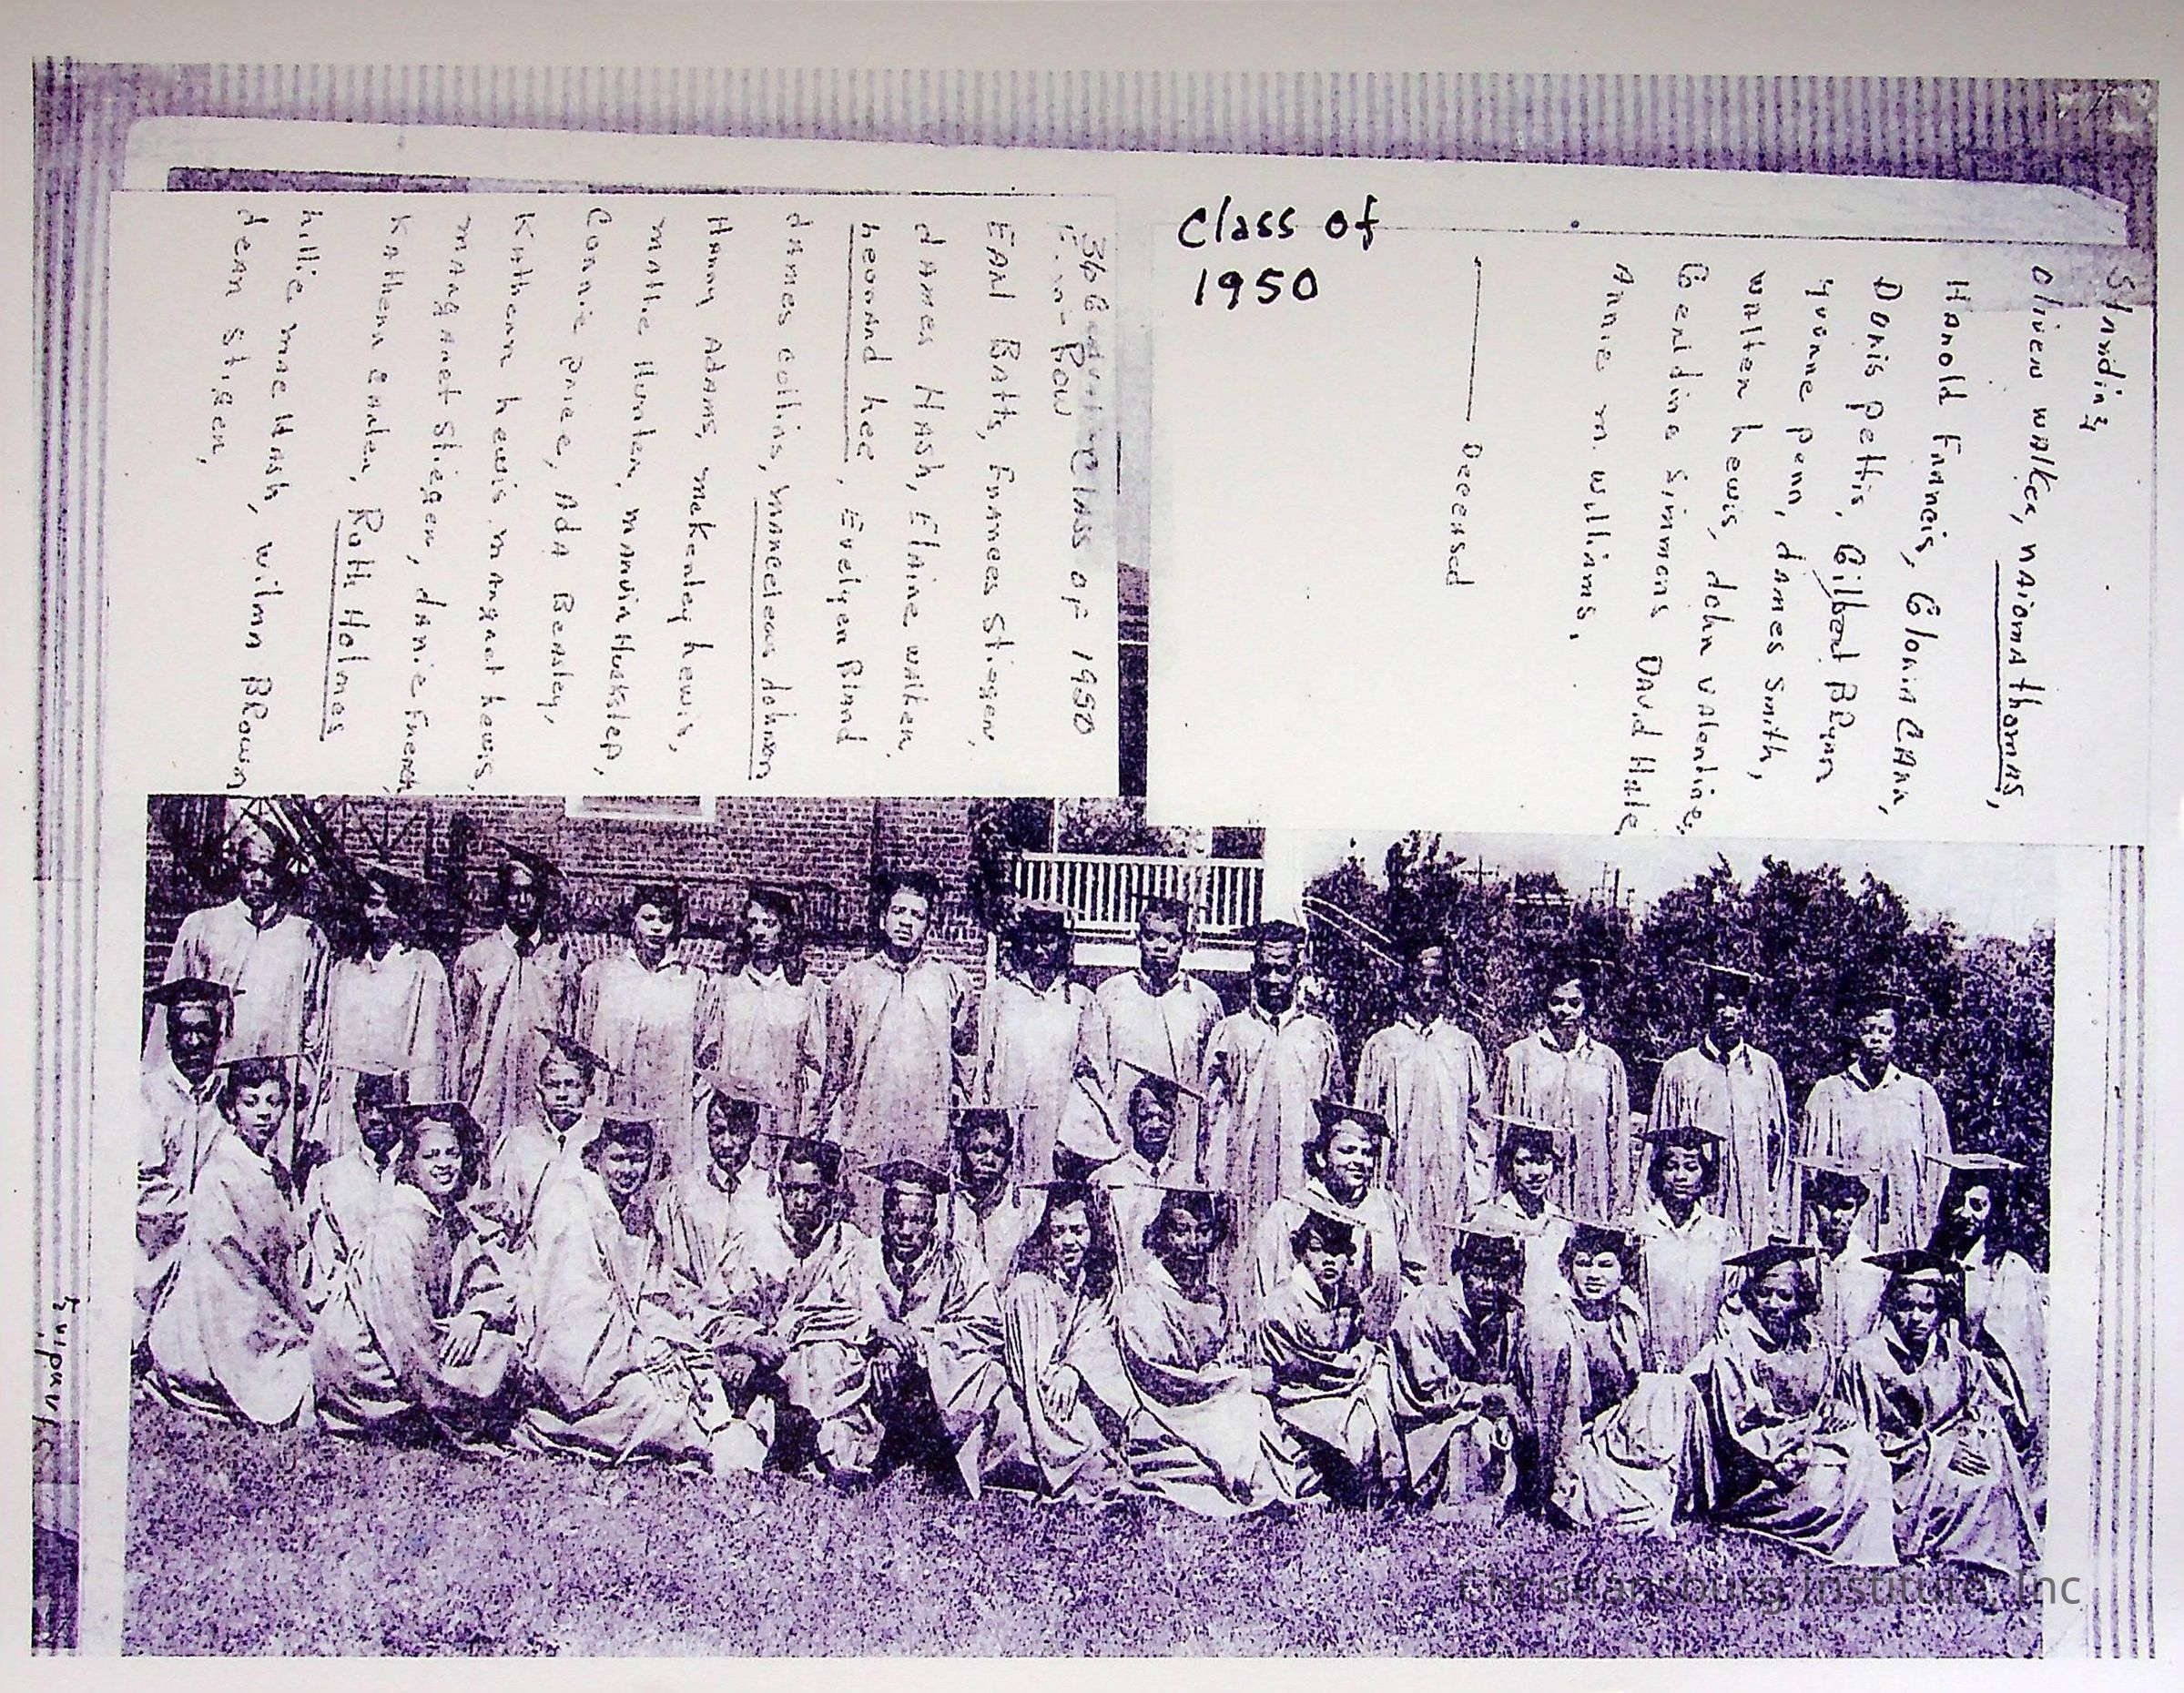 Class of
1950
36 Graduating Class of 1950
Row
Earl Batts, Frances Stigger,
James Hash, Elaine walker,
Leonard Lee, Evelyen Bland
James collins, Marceleas Johnson
Harry Adams, mckenley Lewis,
mattie Hunter, marvin Huckstep,
Connie Price, Ada Beasley,
Kathern Lewis, margaret Lewis,
margaret Stigger, Janie French,
Kathern Carter, Ruth Holmes
Lillie mae Hash, wilma Brown
Jean Stiger,
Standing
Oliver walker, naioma thomas,
Harold Francis, Gloria CARR,
Doris pettis, Gilbert BRynn
Yvonne penn, James Smith,
walter Lewis, John valentine,
Geraldine Simmons David Hale,
Annie m. williams,
Deceased
Standing
Christiansburg Institute, Inc